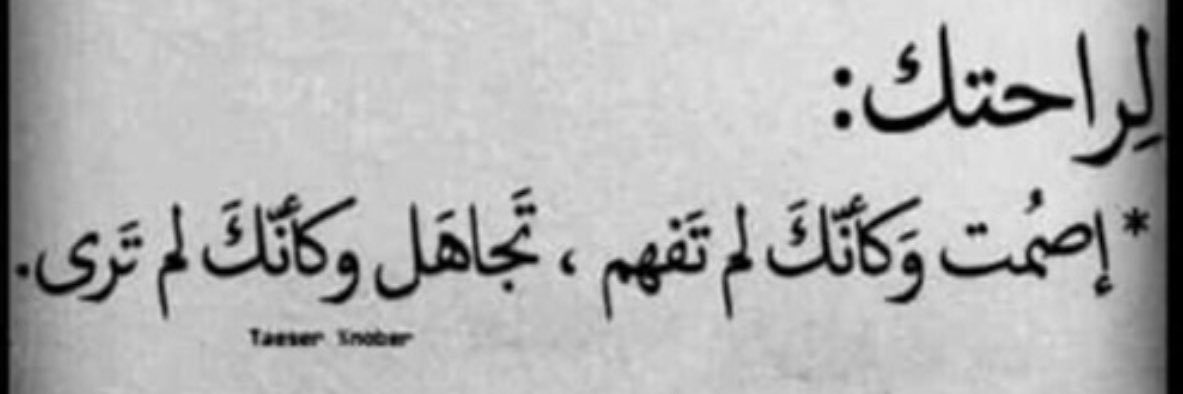 لِراحتك:
* إصمُت وَكأنّكَ لم تَفهم ، تَجاهَل وكأنّكَ لم تَرى.
Taeser Snober